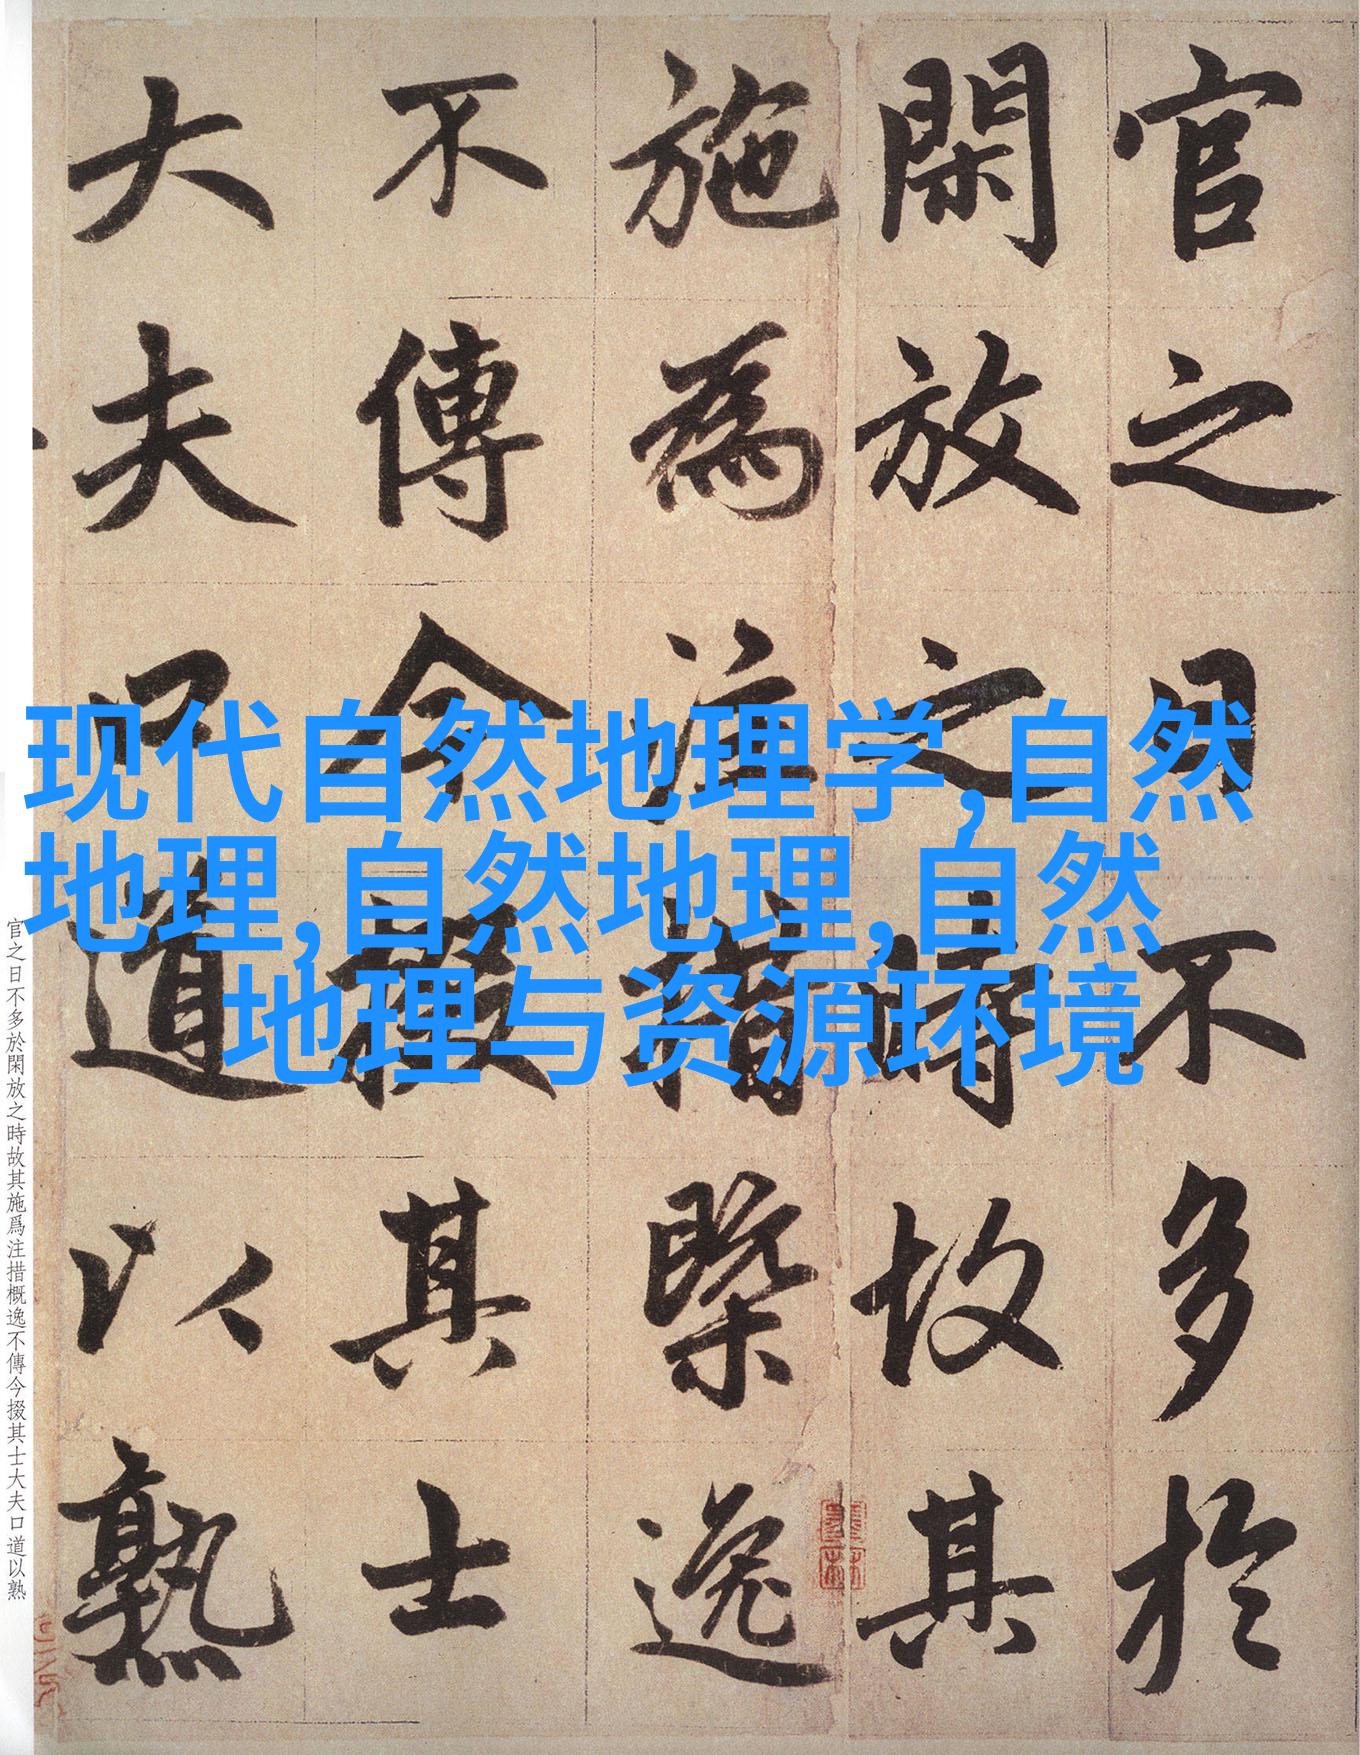 官之日不多於
閑放之時故其
施為注措槩逸
不傳今掇其士
大夫口道以熟
现代自然地理学,自然
地理,自然地理,自然
地理与资源环境
官之日不多於閑放之時故其施爲注措概逸不傳今掇其士大夫口道以熟